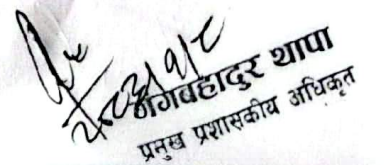 जंगबहादुर थापा
प्रमुख प्रशासकीय अधिकृत